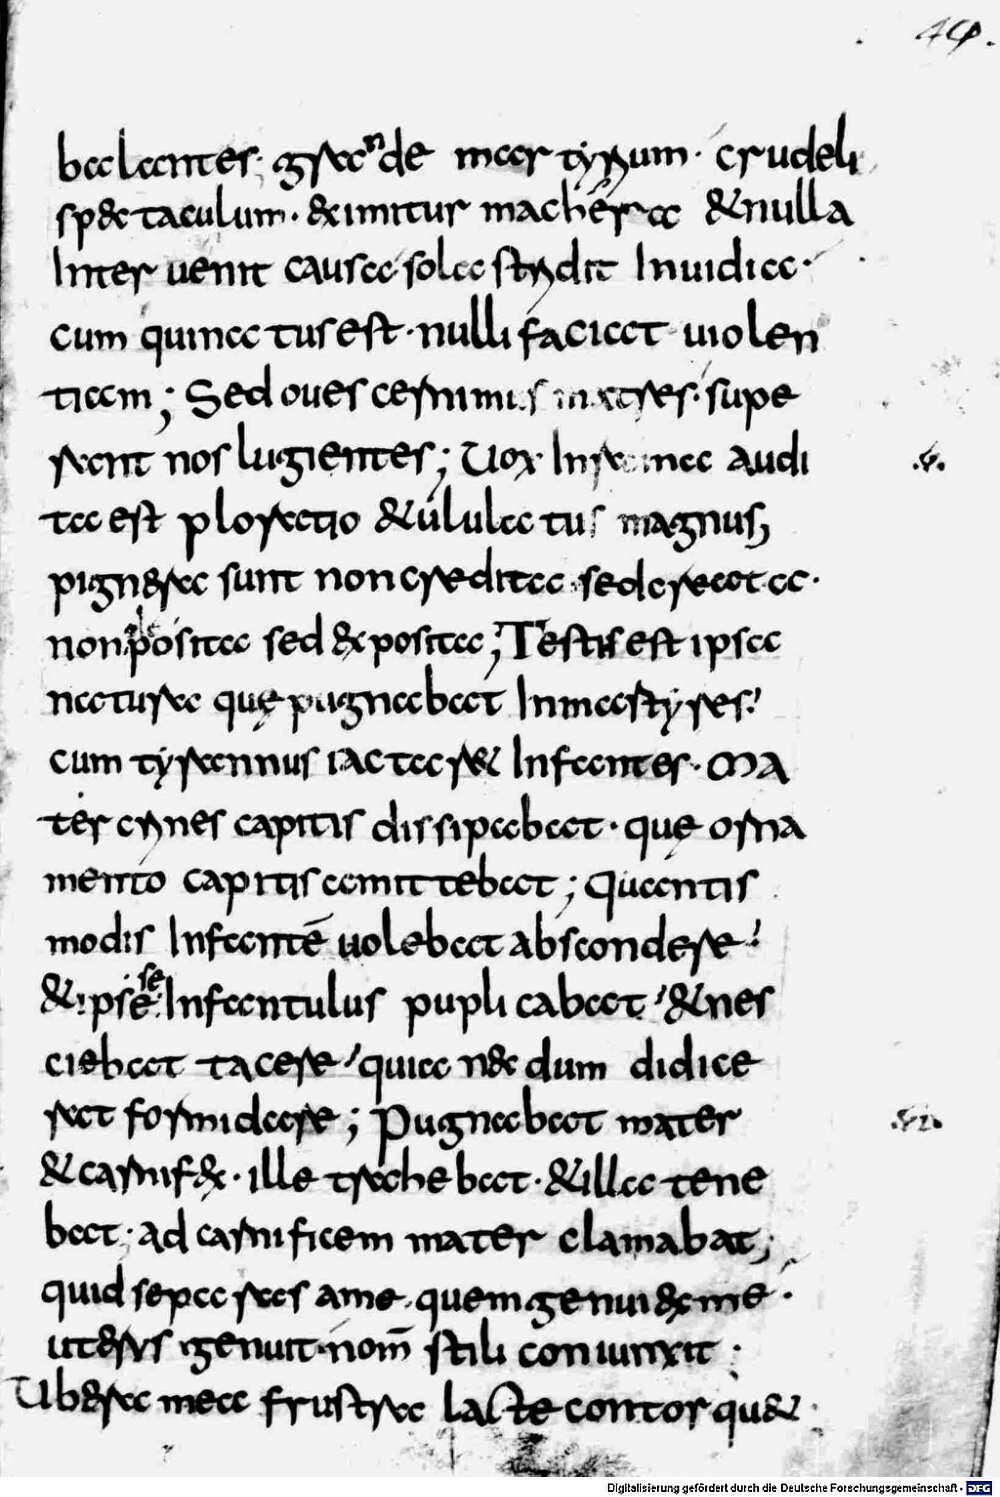 49.
balantes. grandę martyrium. crudeli
spectaculum. eximitur machera &nulla
Inter uenit causa. sola stridit Inuidia.
cum qui natus est. nulli faciat uiolen
tiam; Sed oues cernimus matres. supe
rant nos lugientes; Uox In rama audi
ta est ploratio &ululatus magnus;
pignera sunt non credita. sed creata.
non posita sed exposita; Testis est ipsa
natura quę pugnabat In martyres.
cum tyrannus iactaret Infantes. Ma
ter crines capitis dissipabat. quę orna
mento capitis amittebat; Quantis
modis Infantē uolebat abscondere.
&ipse se. Infantulus puplicabat. &nes
ciebat tacere. quia necdum didice
rat formidare; Pugnabat mater
&carnifex. ille trahebat. &illa tene
bat. ad carnificem mater clamabat;
quid separas ame. quem genui exme.
uterus genuit. nom stili coniunxit.
Ubera mea frustra lacte contorquet
Digitalisierung gefördert durch die Deutsche Forschungsgemeinschaft - DFG